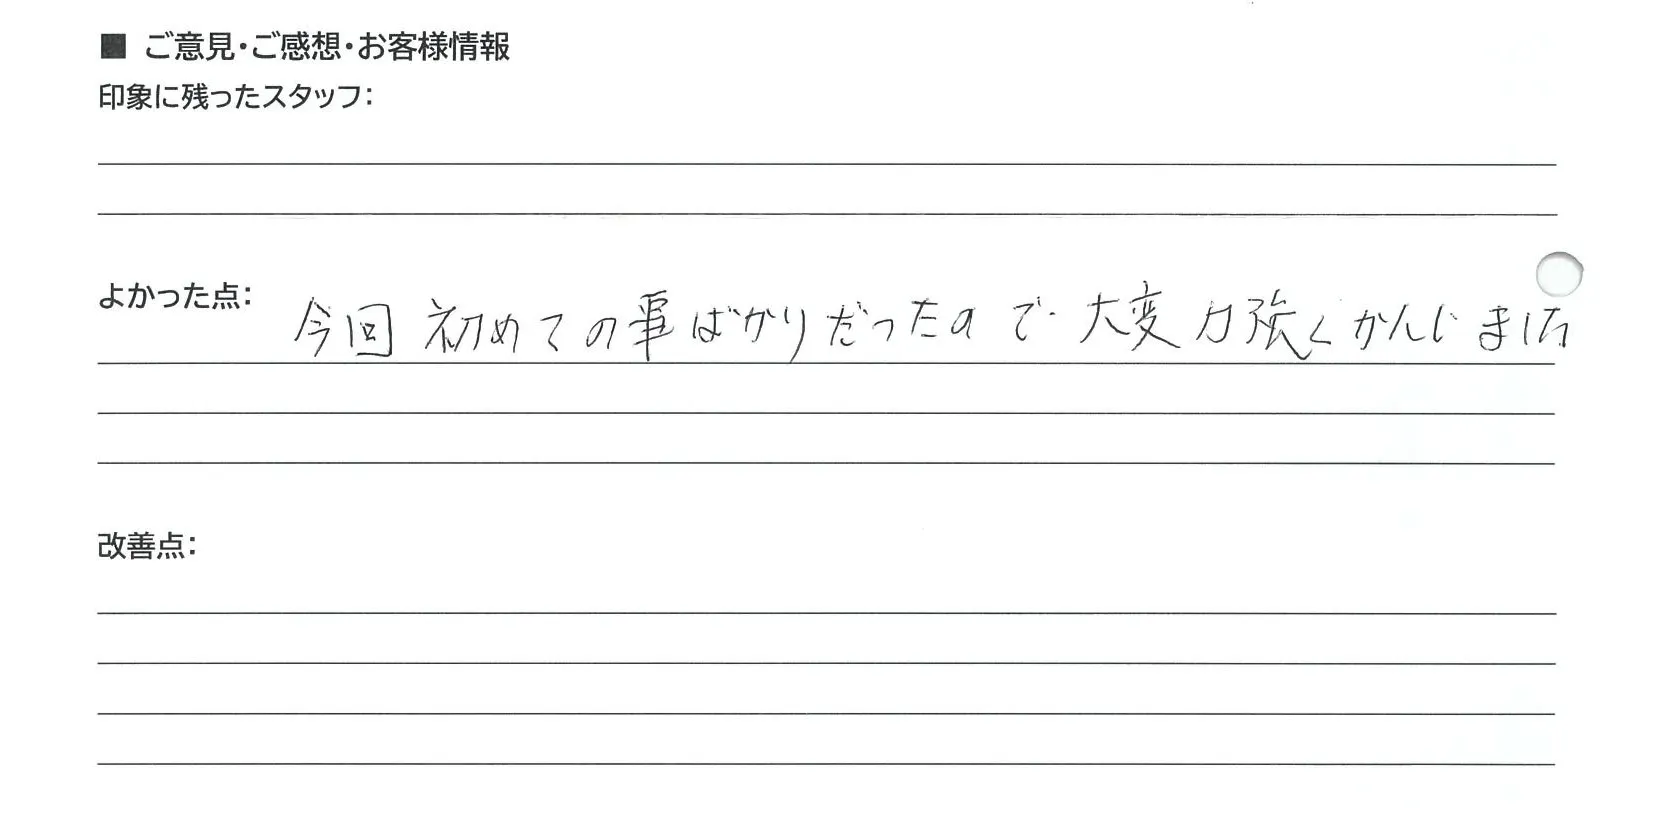 ■ ご意見・ご感想・お客様情報
印象に残ったスタッフ：
よかった点： 今回初めての事ばかりだったので大変力強くかんじました
改善点：